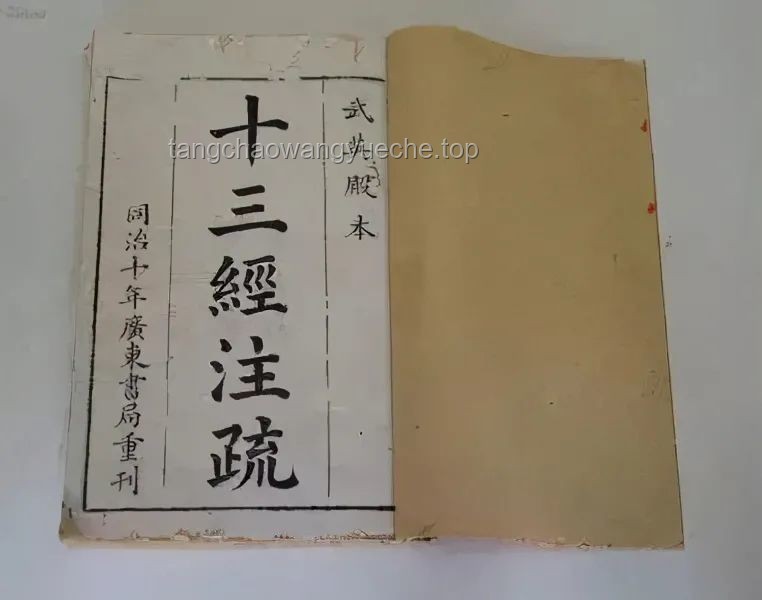 武英殿本
十三經注疏
同治十年廣東書局重刊
tangchaowangyueche.top